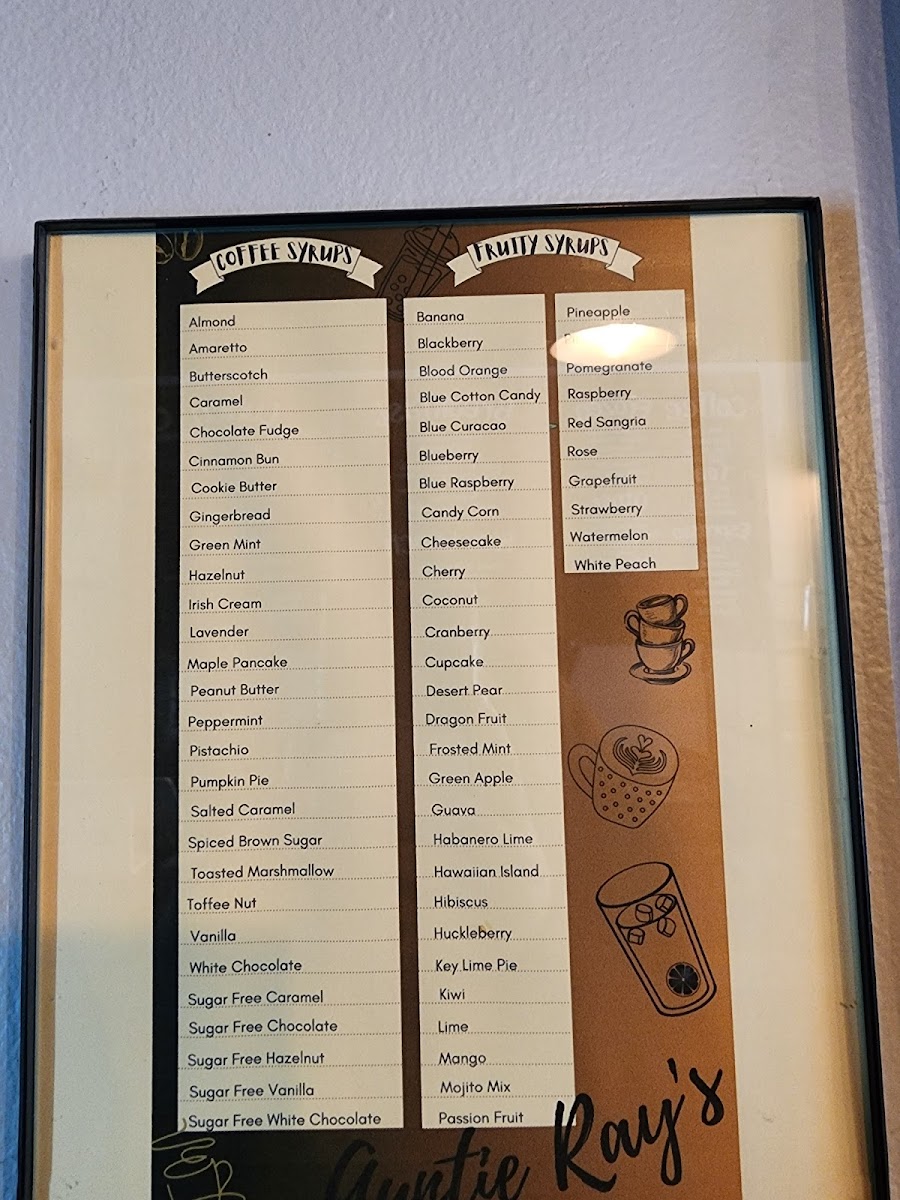 COFFEE SYRUPS
Almond
Amaretto
Butterscotch
Caramel
Chocolate Fudge
Cinnamon Bun
Cookie Butter
Gingerbread
Green Mint
Hazelnut
Irish Cream
Lavender
Maple Pancake
Peanut Butter
Peppermint
Pistachio
Pumpkin Pie
Salted Caramel
Spiced Brown Sugar
Toasted Marshmallow
Toffee Nut
Vanilla
White Chocolate
Sugar Free Caramel
Sugar Free Chocolate
Sugar Free Hazelnut
Sugar Free Vanilla
Sugar Free White Chocolate
FRUITY SYRUPS
Banana
Blackberry
Blood Orange
Blue Cotton Candy
Blue Curacao
Blueberry
Blue Raspberry
Candy Corn
Cheesecake
Cherry
Coconut
Cranberry
Cupcake
Desert Pear
Dragon Fruit
Frosted Mint
Green Apple
Guava
Habanero Lime
Hawaiian Island
Hibiscus
Huckleberry
Key Lime Pie
Kiwi
Lime
Mango
Mojito Mix
Passion Fruit
Pineapple
Pomegranate
Raspberry
Red Sangria
Rose
Grapefruit
Strawberry
Watermelon
White Peach
Auntie Ray's